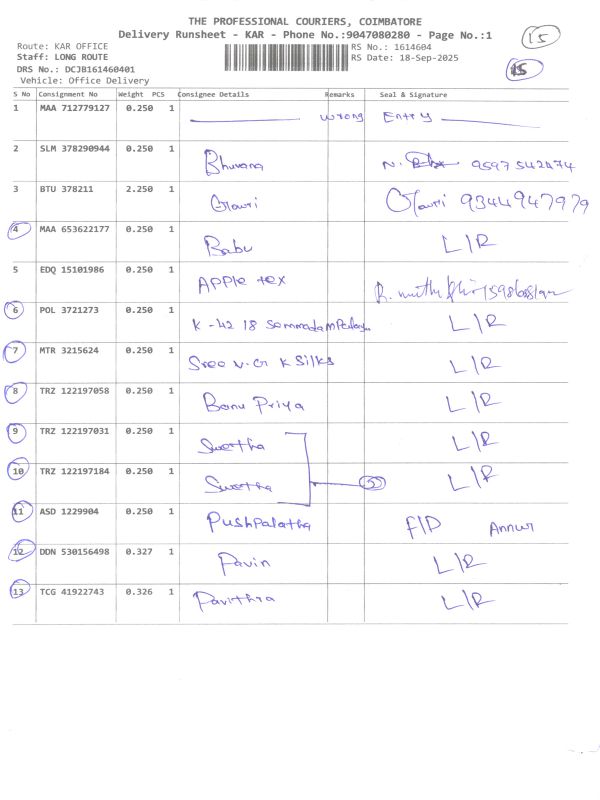 THE PROFESSIONAL COURIERS, COIMBATORE
Delivery Runsheet - KAR - Phone No.:9047080280 - Page No.:1
15
Route: KAR OFFICE RS No.: 1614604
Staff: LONG ROUTE RS Date: 18-Sep-2025
15
DRS No.: DCJB161460401
Vehicle: Office Delivery
S No Consignment No Weight PCS Consignee Details Remarks Seal & Signature
1 MAA 712779127 0.250 1 Wrong Entry
2 SLM 378290944 0.250 1 Bhuvana N. 9597542474
3 BTU 378211 2.250 1 Gowri Gowri 9344947979
4 MAA 653622177 0.250 1 Babu L/R
5 EDQ 15101986 0.250 1 Apple tex R.
6 POL 3721273 0.250 1 K-42 18 L/R
7 MTR 3215624 0.250 1 Sree V.G K Silks L/R
8 TRZ 122197058 0.250 1 Banu Priya L/R
9 TRZ 122197031 0.250 1 Swetha L/R
10 TRZ 122197184 0.250 1 Swetha L/R
11 ASD 1229904 0.250 1 Pushpalatha F/D Annur
12 DDN 530156498 0.327 1 Pavin L/R
13 TCG 41922743 0.326 1 Pavithra L/R